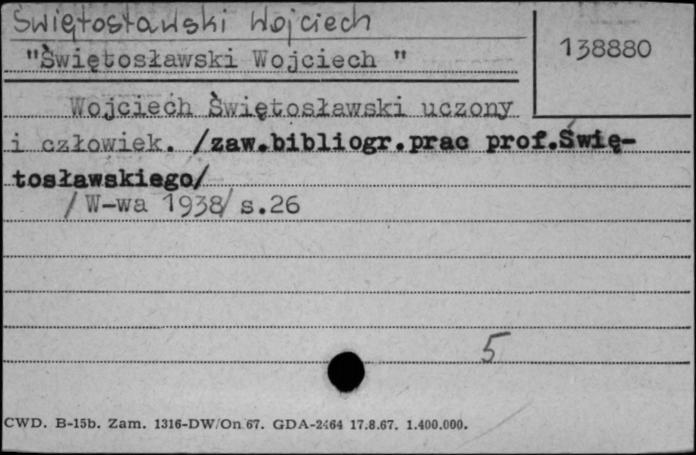 Świętosławski Wojciech
"Świętosławski Wojciech "
138880
Wojciech Świętosławski uczony
i człowiek. /zaw.bibliogr.prac prof.Świę-
tosławskiego/
/W-wa 1938/ s.26
5
CWD. B-15b. Zam. 1316-DW/On 67. GDA-2464 17.8.67. 1.400.000.